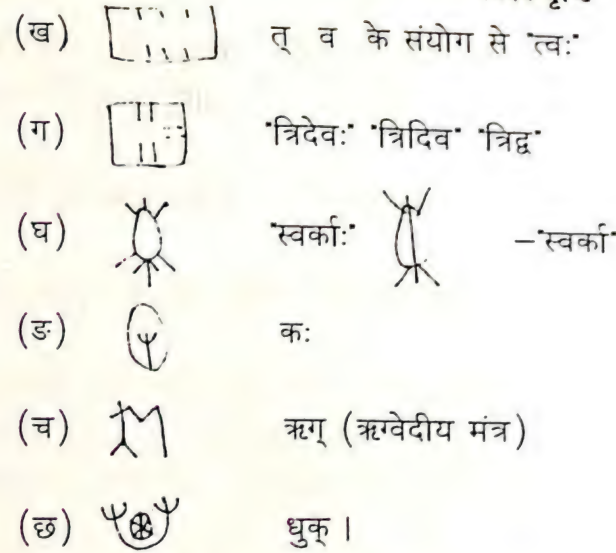 (ख) त् व के संयोग से "त्वः"
(ग) "त्रिदेवः" "त्रिदिव" "त्रिद्व"
(घ) "स्वर्काः" –"स्वर्का"
(ङ) कः
(च) ऋग् (ऋग्वेदीय मंत्र)
(छ) धुक् ।